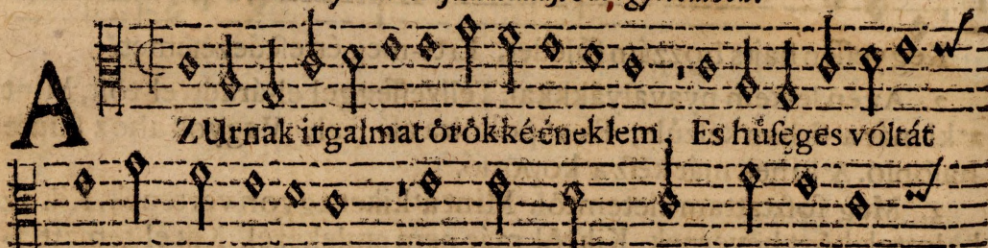 AZ Urnak irgalmat örökké éneklem, Es hűſeges vóltát